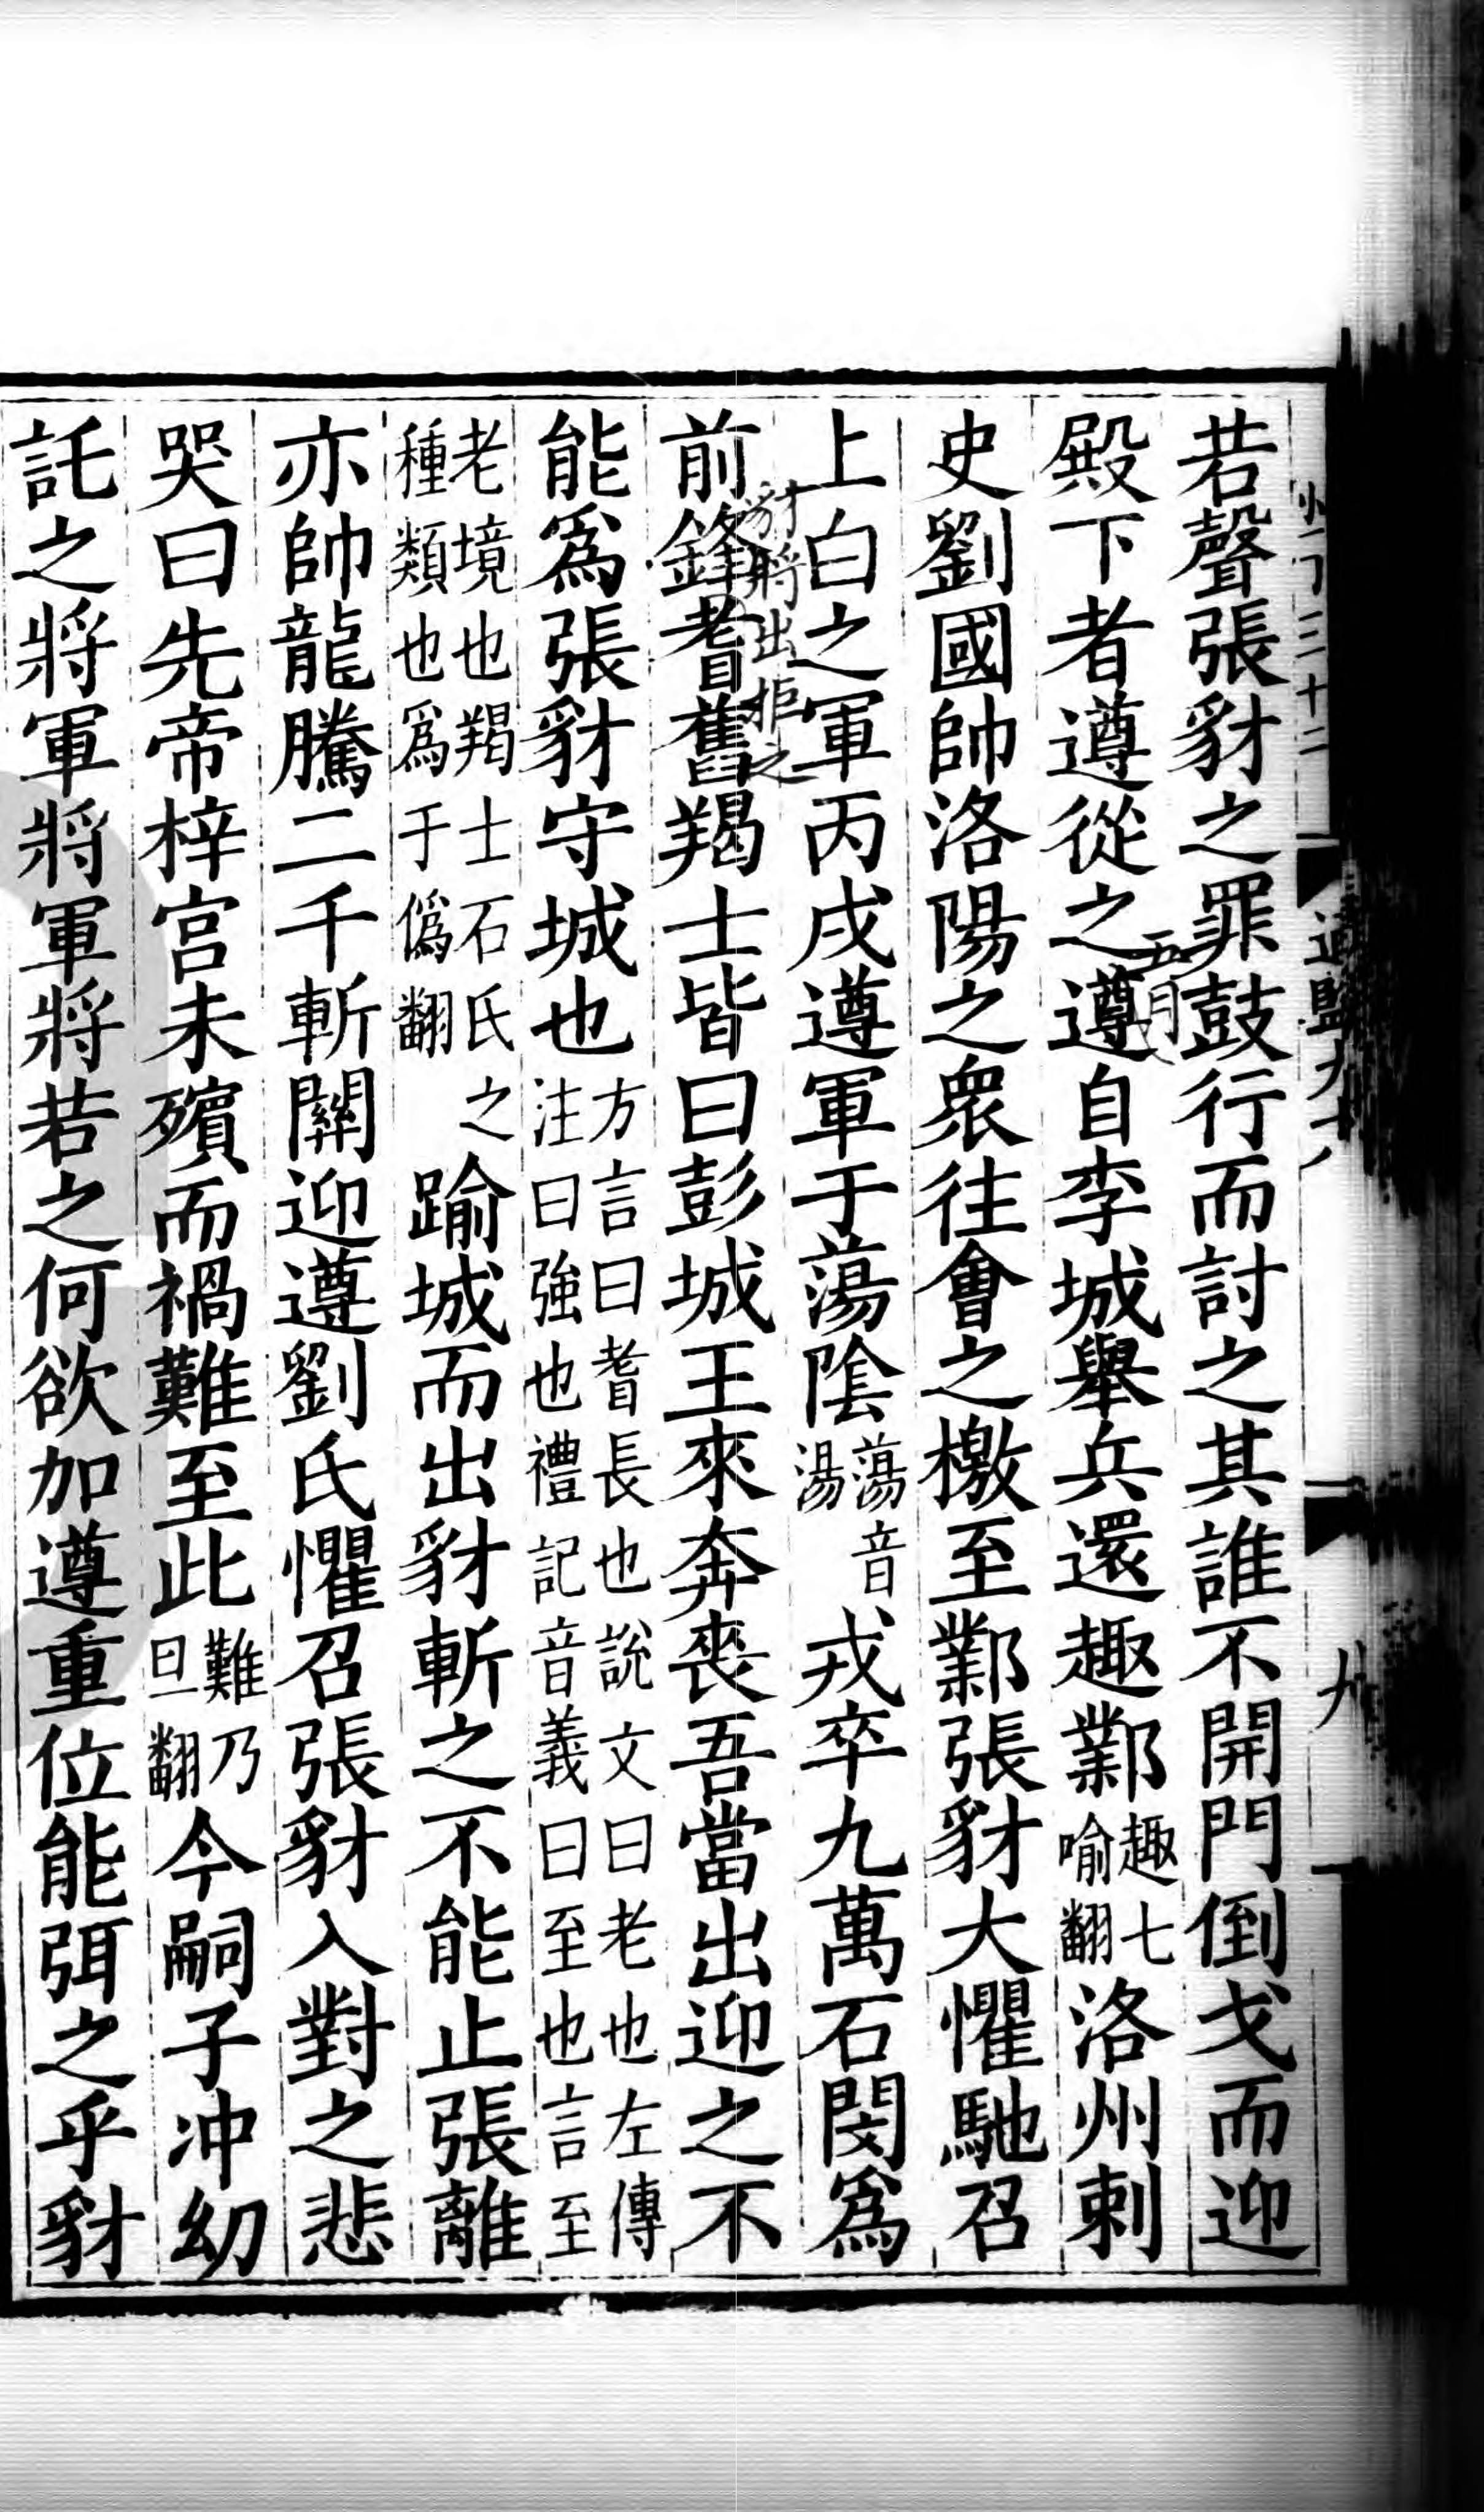 若聲張豺之罪鼓行而討之其誰不開門倒戈而迎
殿下者遵從之遵自李城舉兵還趣鄴趣七喻翻洛州刺
五月
史劉國帥洛陽之衆往會之檄至鄴張豺大懼馳召
上白之軍丙戌遵軍于蕩陰蕩音湯戎卒九萬石閔爲
豺將出拒之
前鋒耆舊羯士皆曰彭城王來奔喪吾當出迎之不
能爲張豺守城也方言曰耆長也說文曰老也左傳注曰強也禮記音義曰至也言至
老境也羯士石氏之種類也爲于僞翻踰城而出豺斬之不能止張離
亦帥龍騰二千斬關迎遵劉氏懼召張豺入對之悲
哭曰先帝梓宮未殯而禍難至此難乃旦翻今嗣子冲幼
託之將軍將軍將若之何欲加遵重位能弭之乎豺